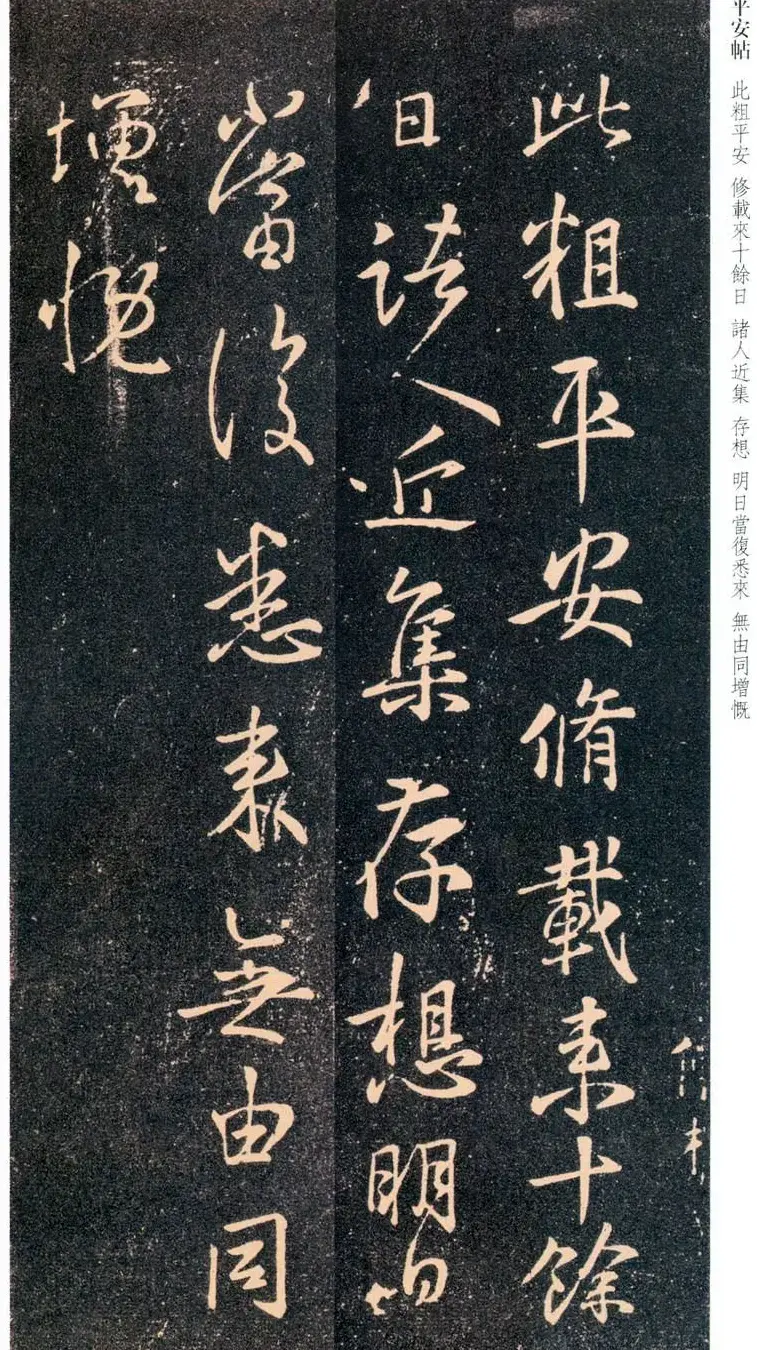 平安帖 此粗平安 修載來十餘日 諸人近集 存想 明日當復悉來 無由同增慨
此粗平安脩載来十餘
日諸人近集存想明日
當復悉来無由同
增慨